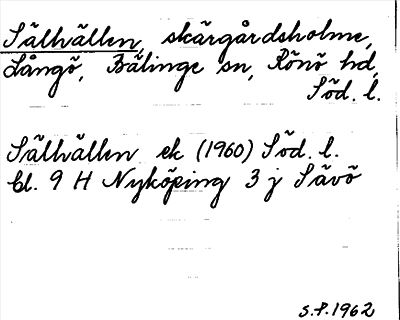 Sälhällen, skärgårdsholme,
Långö, Bälinge sn, Rönö hd,
Söd. l.
Sälhällen ek (1960) Söd. l.
bl. 9 H Nyköping 3 j Sävö
S.P. 1962